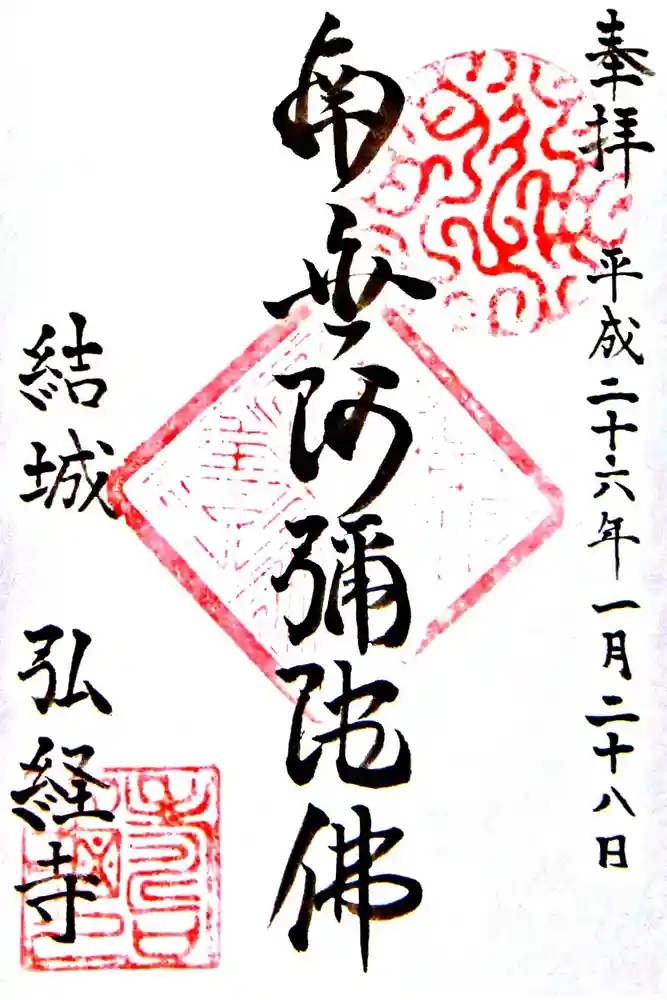 奉拝 平成二十六年一月二十八日
南無阿彌陀佛
結城 弘経寺